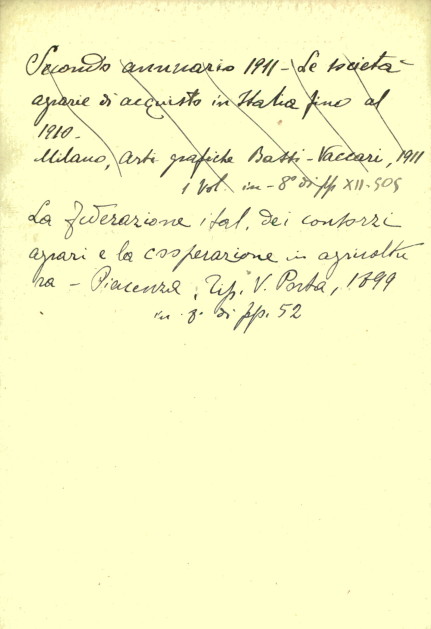 Secondo annuario 1911 - Le società
agrarie di acquisto in Italia fino al
1910.
Milano, Arti grafiche Bassi-Vaccari, 1911
1 Vol. in - 8° di pp XII-505
La federazione ital. dei consorzi
agrari e la cooperazione in agricoltu
ra - Piacenza, Tip. V. Porta, 1899
in 8° di pp. 52